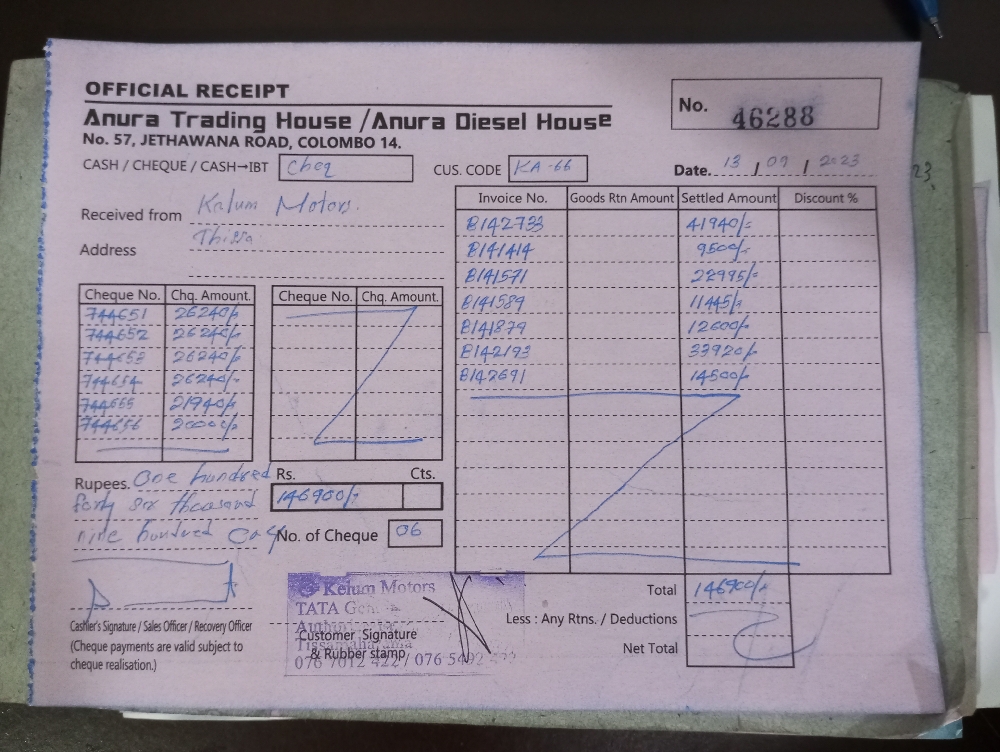 OFFICIAL RECEIPT
Anura Trading House / Anura Diesel House
No. 57, JETHAWANA ROAD, COLOMBO 14.
No. 46288
CASH / CHEQUE / CASH→IBT Cheq
CUS. CODE KA-66
Date. 13 / 09 / 2023
Received from Kelum Motors.
Address Thissa
Invoice No. Goods Rtn Amount Settled Amount Discount %
B142733 41940/-
B141414 9500/-
B141571 22995/-
B141589 11445/-
B141879 12600/-
B142193 33920/-
B142691 14500/-
Cheque No. Chq. Amount. Cheque No. Chq. Amount.
744651 26240/-
744652 26240/-
744653 26240/-
744654 26240/-
744655 21940/-
744656 20000/-
Rupees. One hundred
forty six thousand
nine hundred only
Rs. Cts.
146900/-
No. of Cheque 06
Total 146900/-
Less : Any Rtns. / Deductions
Net Total
Cashier's Signature / Sales Officer / Recovery Officer
(Cheque payments are valid subject to
cheque realisation.)
Kelum Motors
TATA
Customer Signature
& Rubber stamp
Tissamaharama
076 7012 422 / 076 5492